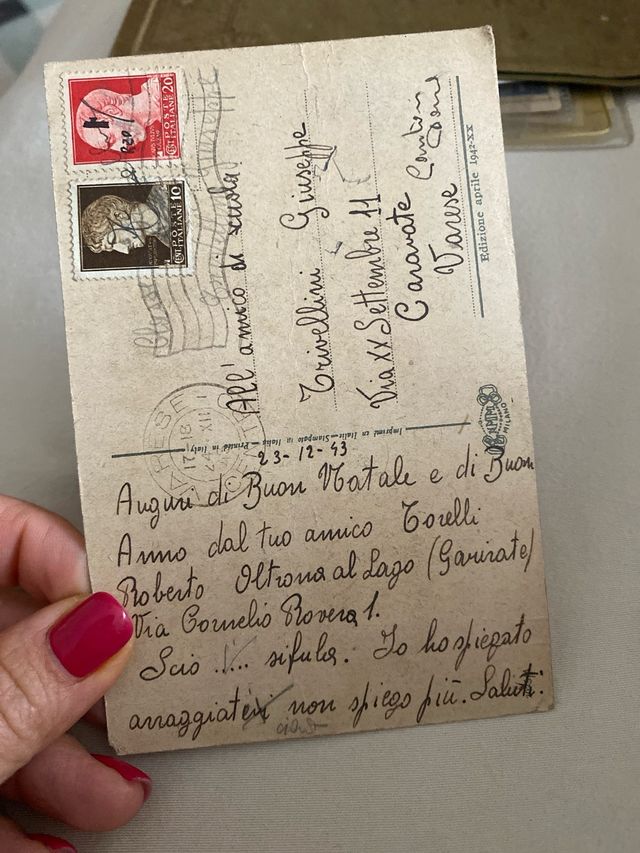 POSTE ITALIANE 20
POSTE ITALIANE 10
All'amico di scuola
Trivellini Giuseppe
Via XX Settembre 11
Caravate
Varese
Edizione aprile 1942-XX
Imprimé en Italie - Stampato in Italia - Printed in Italy
MILANO
VARESE
17-18
XII
23-12-43
Auguri di Buon Natale e di Buon
Anno dal tuo amico Torelli
Roberto Oltrona al Lago (Gavirate)
Via Cornelio Rovera 1.
Scio !... sifula. Io ho spiegato
arraggiatevi non spiego più. Saluti.
ciao